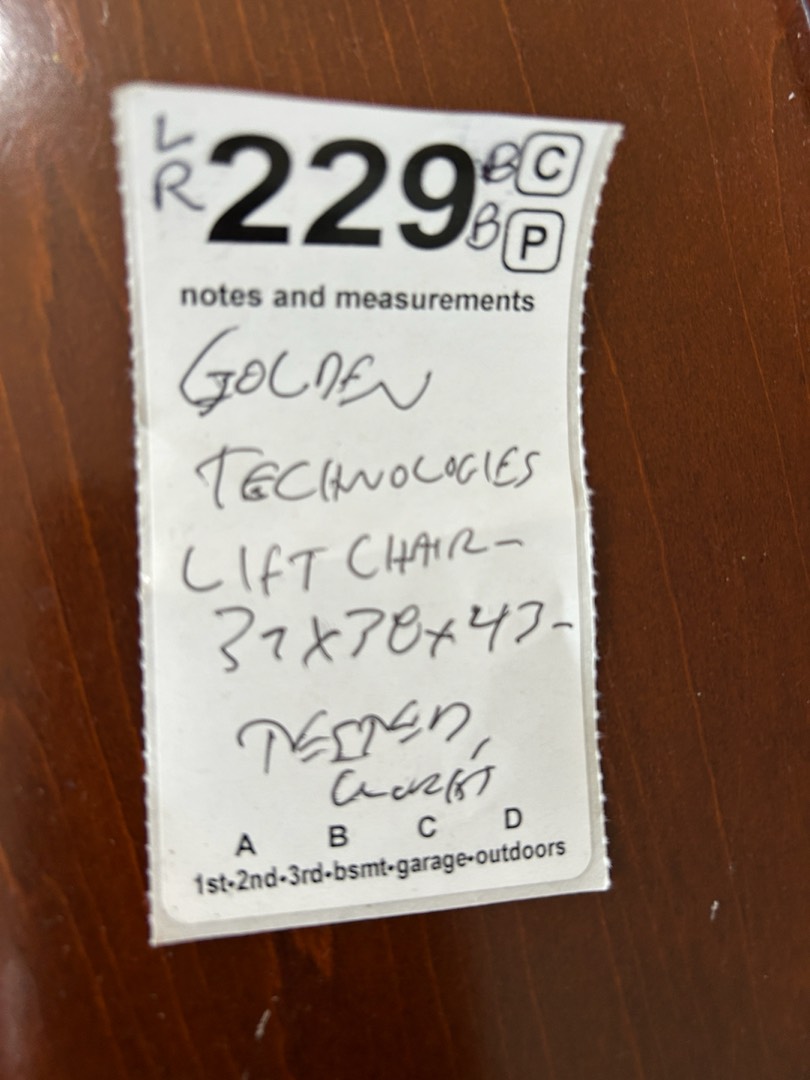 L
R 229 B C
B P
notes and measurements
GOLDEN
TECHNOLOGIES
LIFT CHAIR-
TESTED,
A B C D
1st•2nd•3rd•bsmt•garage•outdoors